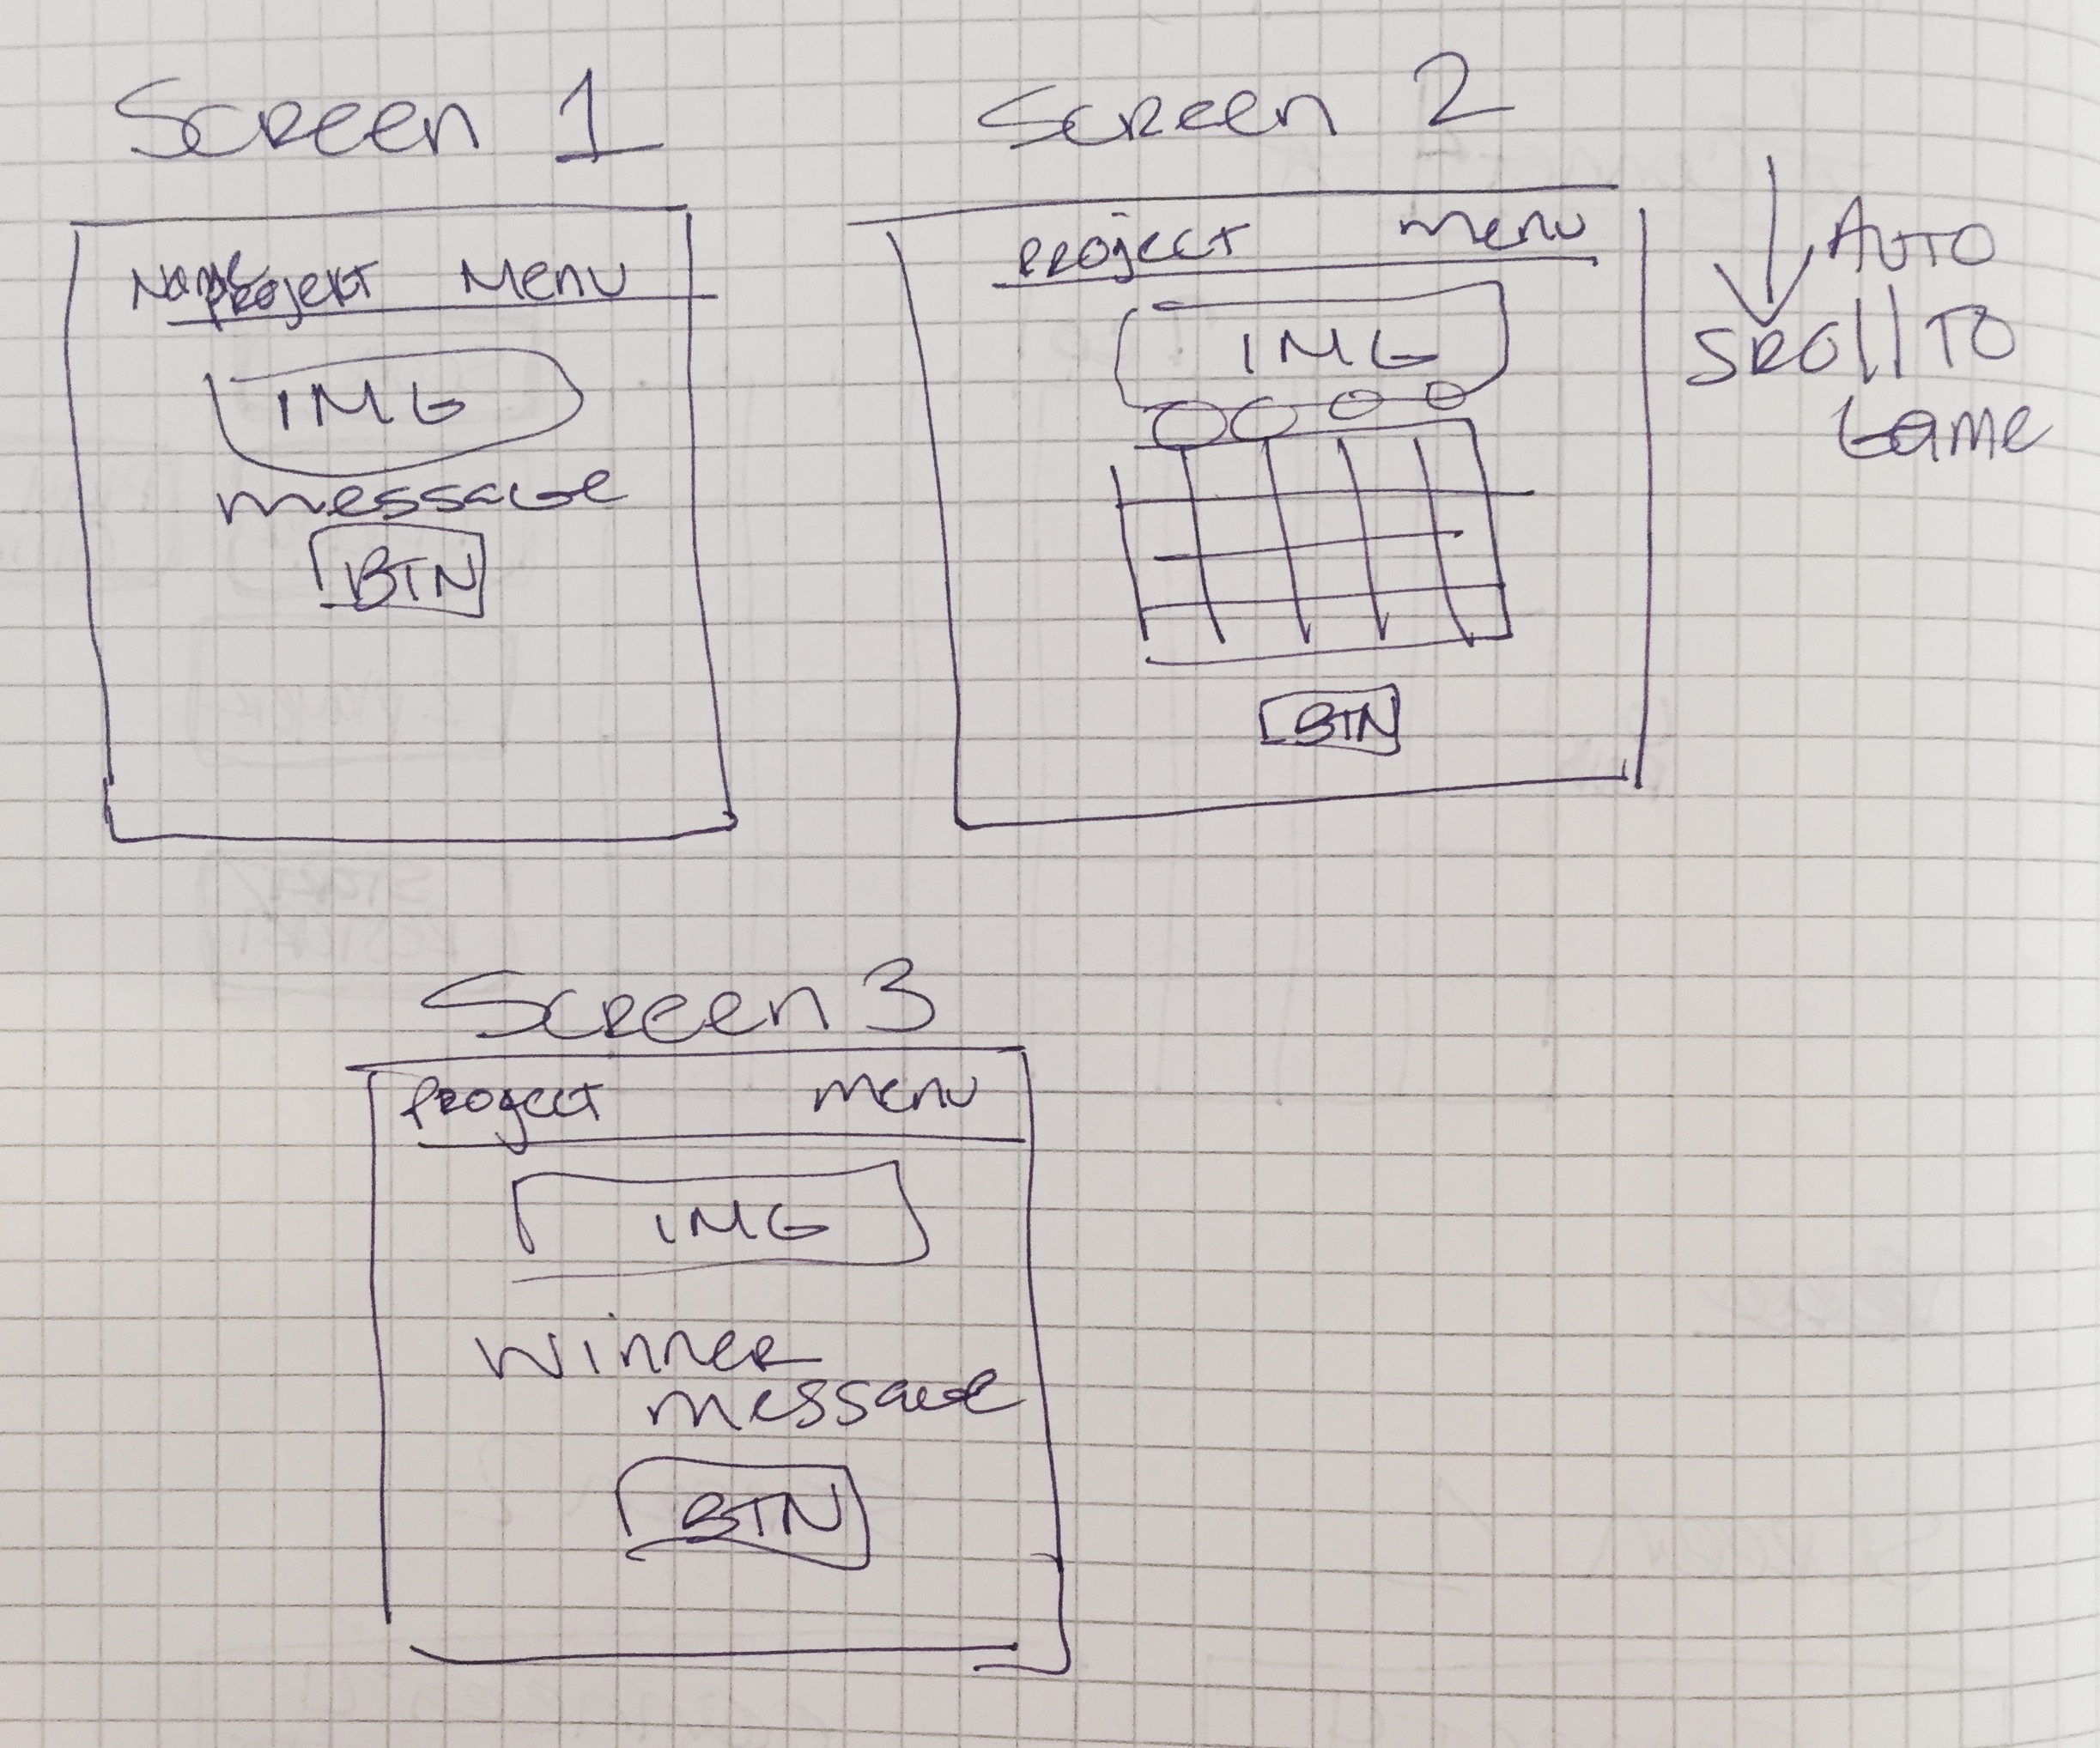 Screen 1
Name Projekt Menu
IMG
message
BTN
Screen 2
Project menu
IMG
BTN
AUTO
SROll TO
Game
Screen 3
Project menu
IMG
Winner
message
BTN